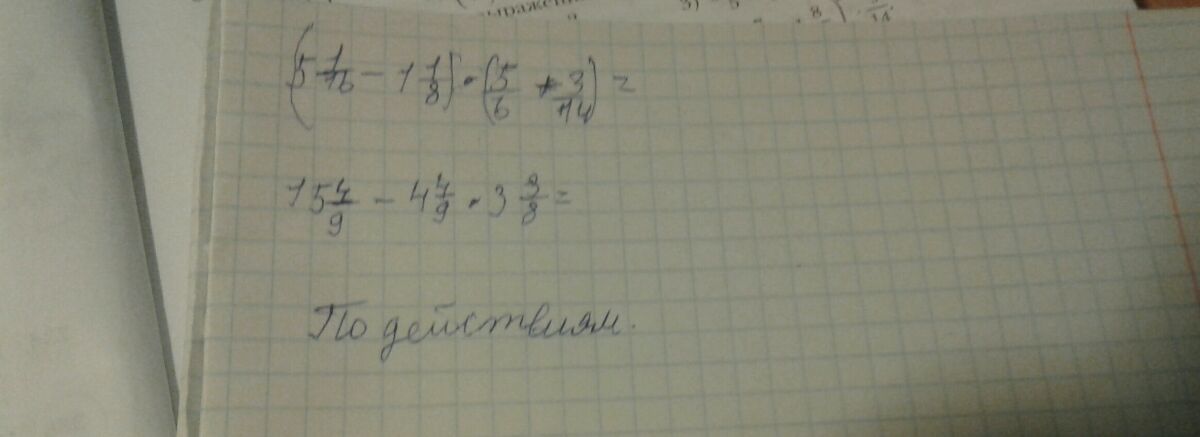 выражени
3) 5
8 ) · 5/14
(5 1/16 − 1 1/8) · (5/6 + 3/14) =
15 4/9 − 4 4/9 · 3 3/8 =
По действиям.